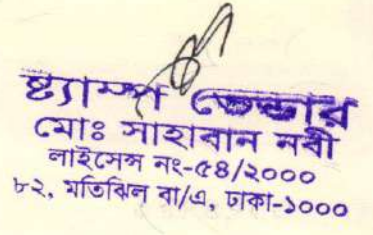 ষ্ট্যাম্প ভেন্ডার
মোঃ সাহাবান নবী
লাইসেন্স নং-৫৪/২০০০
৮২, মতিঝিল বা/এ, ঢাকা-১০০০